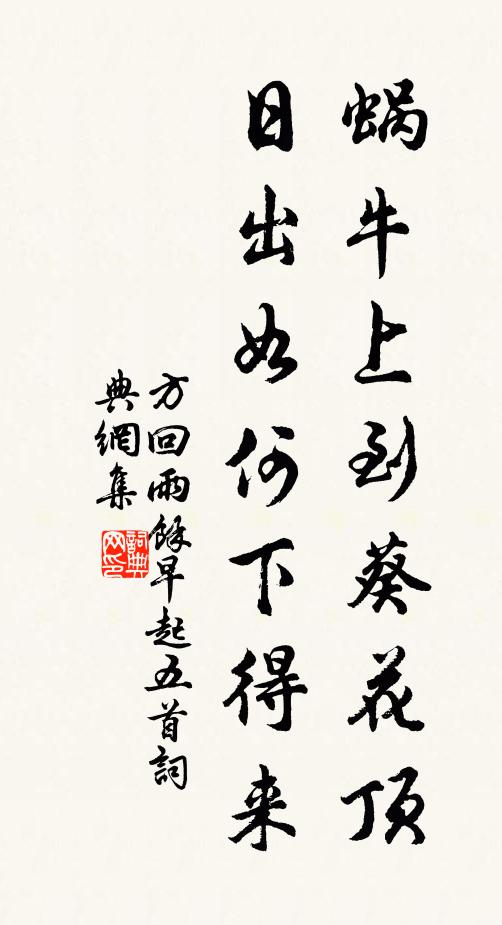 蜗牛上到葵花顶
日出如何下得来
方回雨馀早起五首詞
典網集
詞典网印